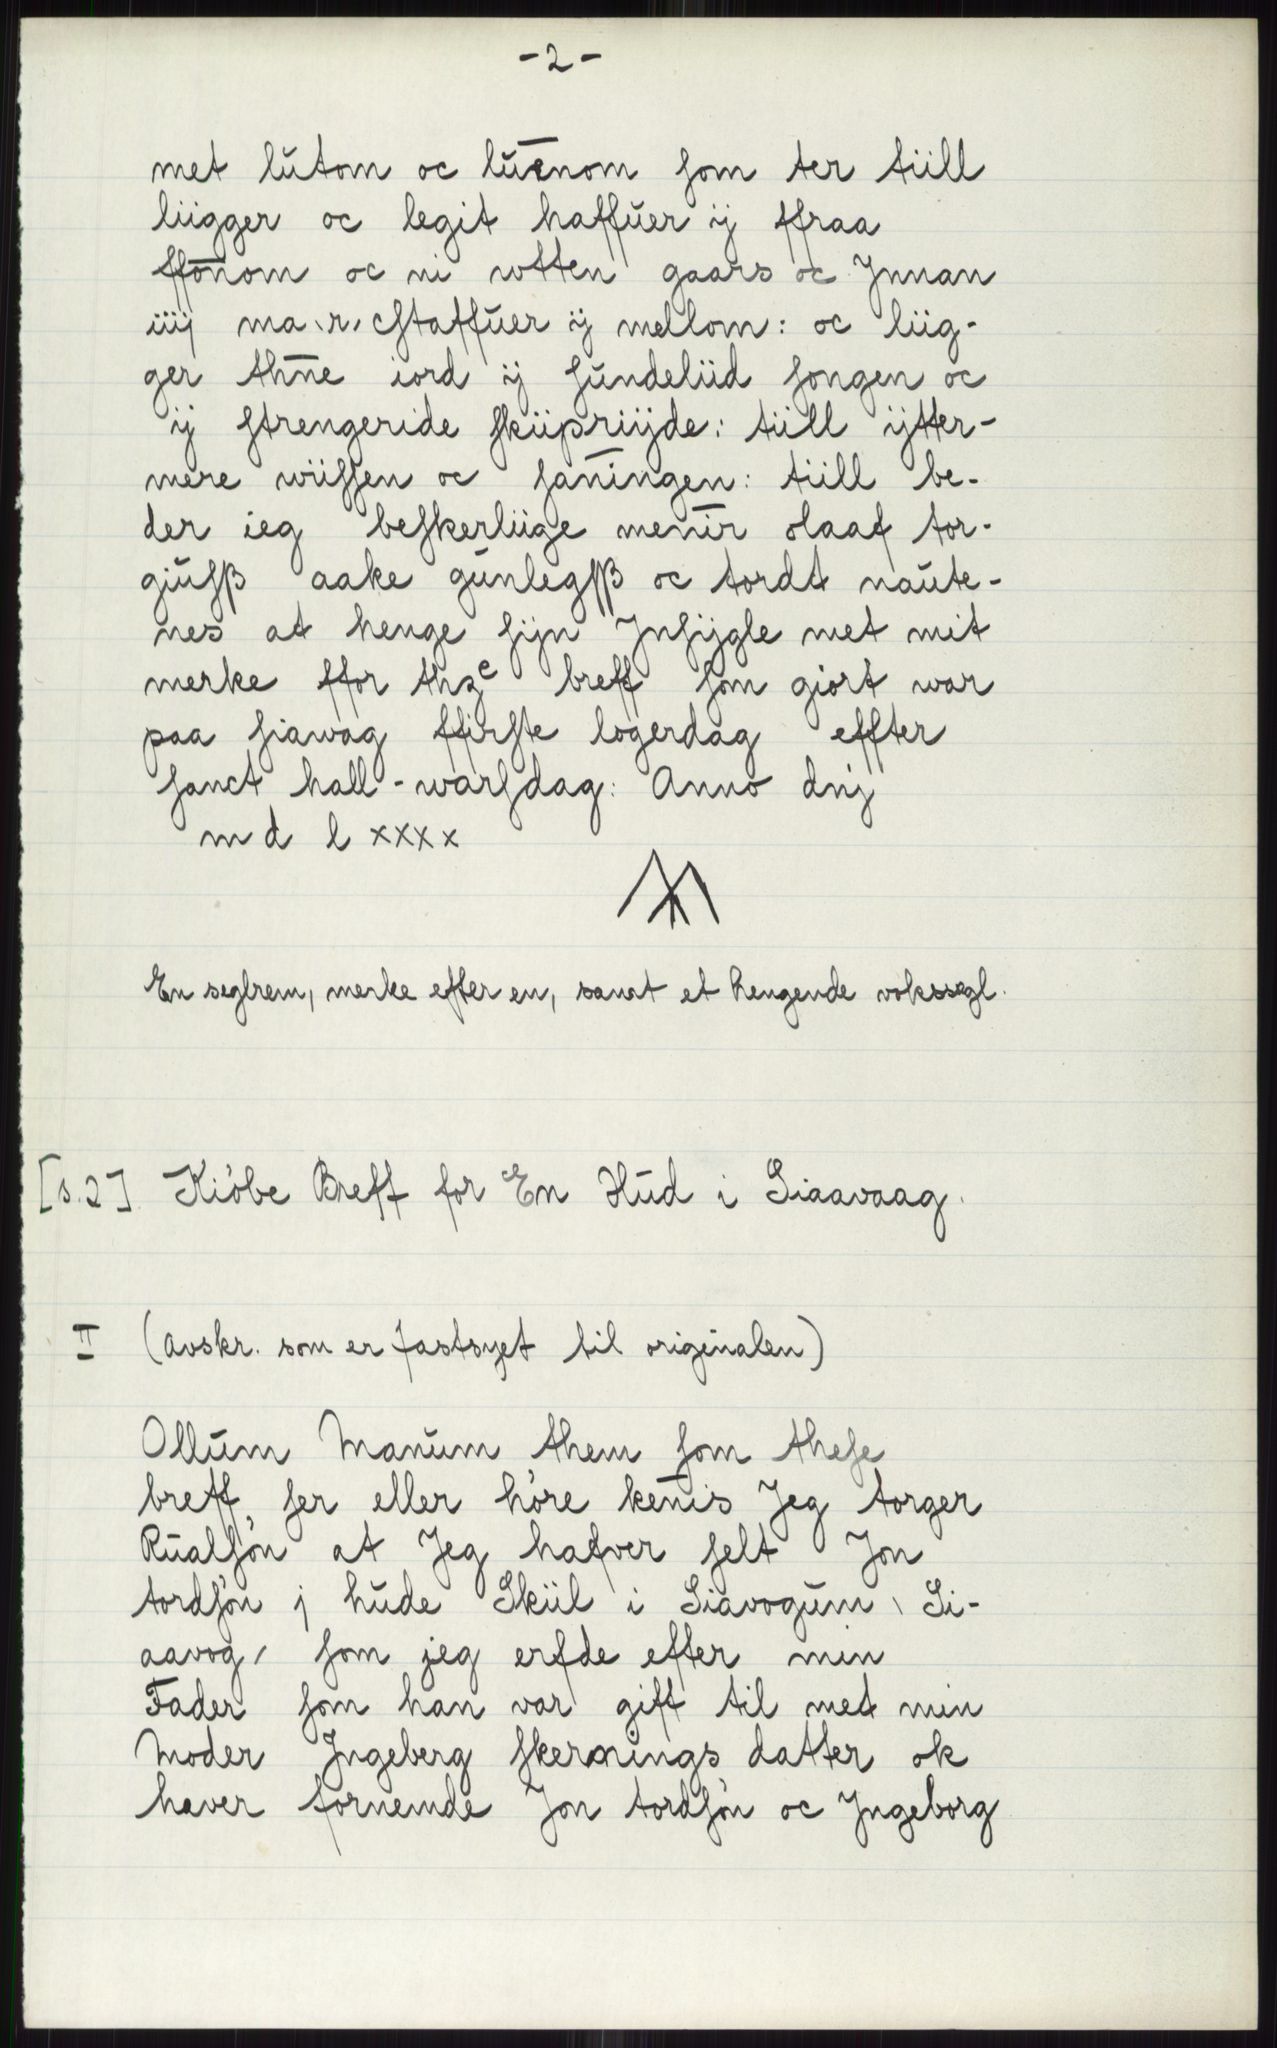 - 2 -
met lutom oc lūēnom som ter tiill
liigger oc legit haffuer ÿ ffraa
ffōnom oc ni wtten gaars oc Jnnan
iiij ma\r/chstaffuer ÿ mellom: oc liig-
ger thn̄e iord ÿ sundeliid songen oc
ÿ strengeride skiipriijde: tiill ÿtter-
mere wiissen oc san̄ingen: tiill be-
der ieg beskerliige men̄ir olaaf tor-
giulsß aake gunlegsß oc tordt naute-
nes at henge sijn Jnsijgle met mit
merke ffor thzc breff som giort war
paa siawag ffirste logerdag effter
sanct hall-warsdag: Anno dnj
m d l xxxx
En seglrem, merke efter en, samt et hengende vokssegl.
[s.2] Kiöbe Breff for En Hud i Siaavaag.
II (Avskr. som er fastsyet til originalen)
Ollum Manum them som these
breff, ser eller höre ken̄is Jeg torger
Rualsön at Jeg hafver selt Jon
tordsön j hude Skiil i Siavogum \ Si-
aavog / som jeg erfde efter min
Fader som han var gift til met min
Moder Jngeberg skernings datter ok
haver fornemde Jon tordsön oc Jngeborg